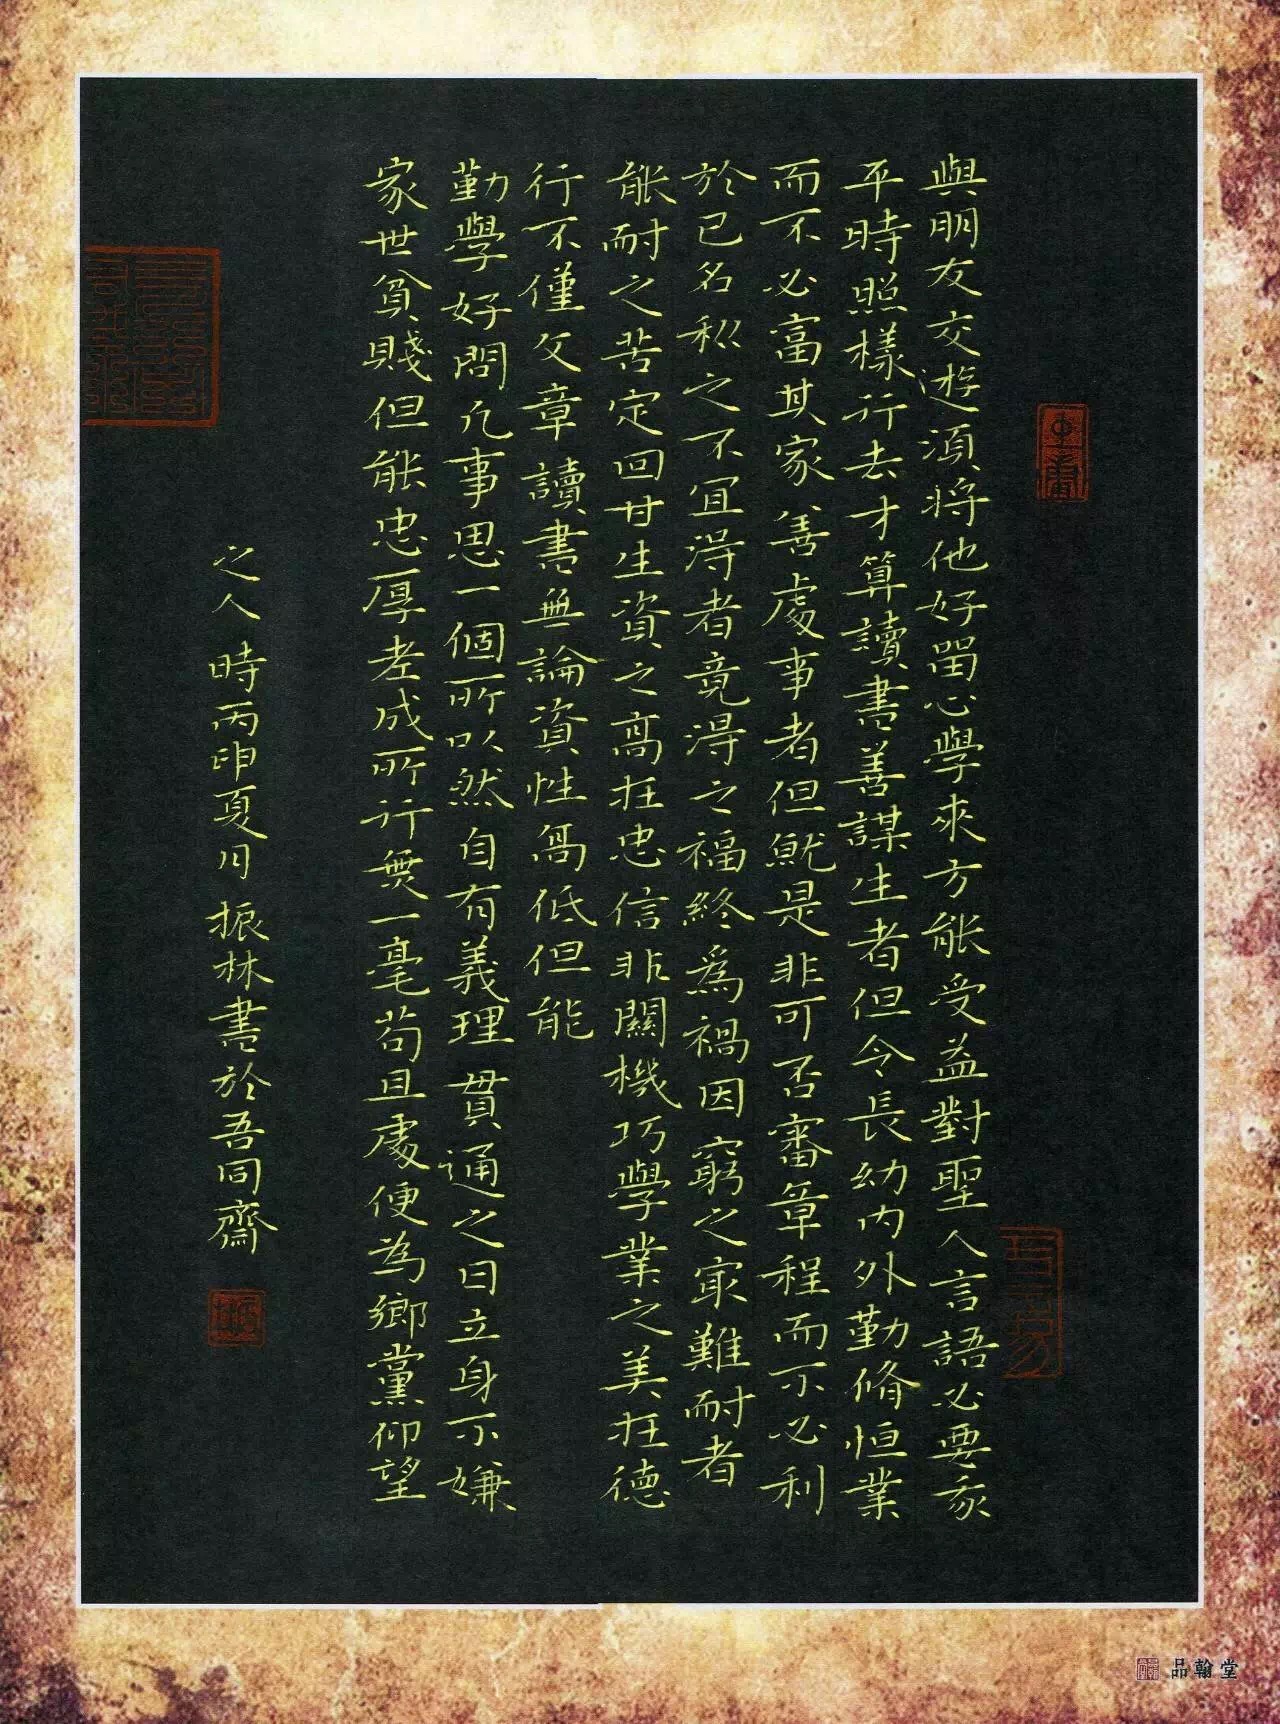 與朋友交遊須將他好畱心學來方能受益對聖人言語必要我
平時照樣行去才算讀書善謀生者但令長幼內外勤脩恒業
而不必富其家善處事者但就是非可否審章程而不必利
於己名利之不宜得者竟得之福終為禍因窮之最難耐者
能耐之苦定回甘生資之高在忠信非關機巧學業之美在德
行不僅文章讀書無論資性高低但能
勤學好問凡事思一個所以然自有義理貫通之日立身不嫌
家世貧賤但能忠厚老成所行無一毫苟且處便為鄉黨仰望
之人時丙申夏月振林書於吾同齋
品翰堂